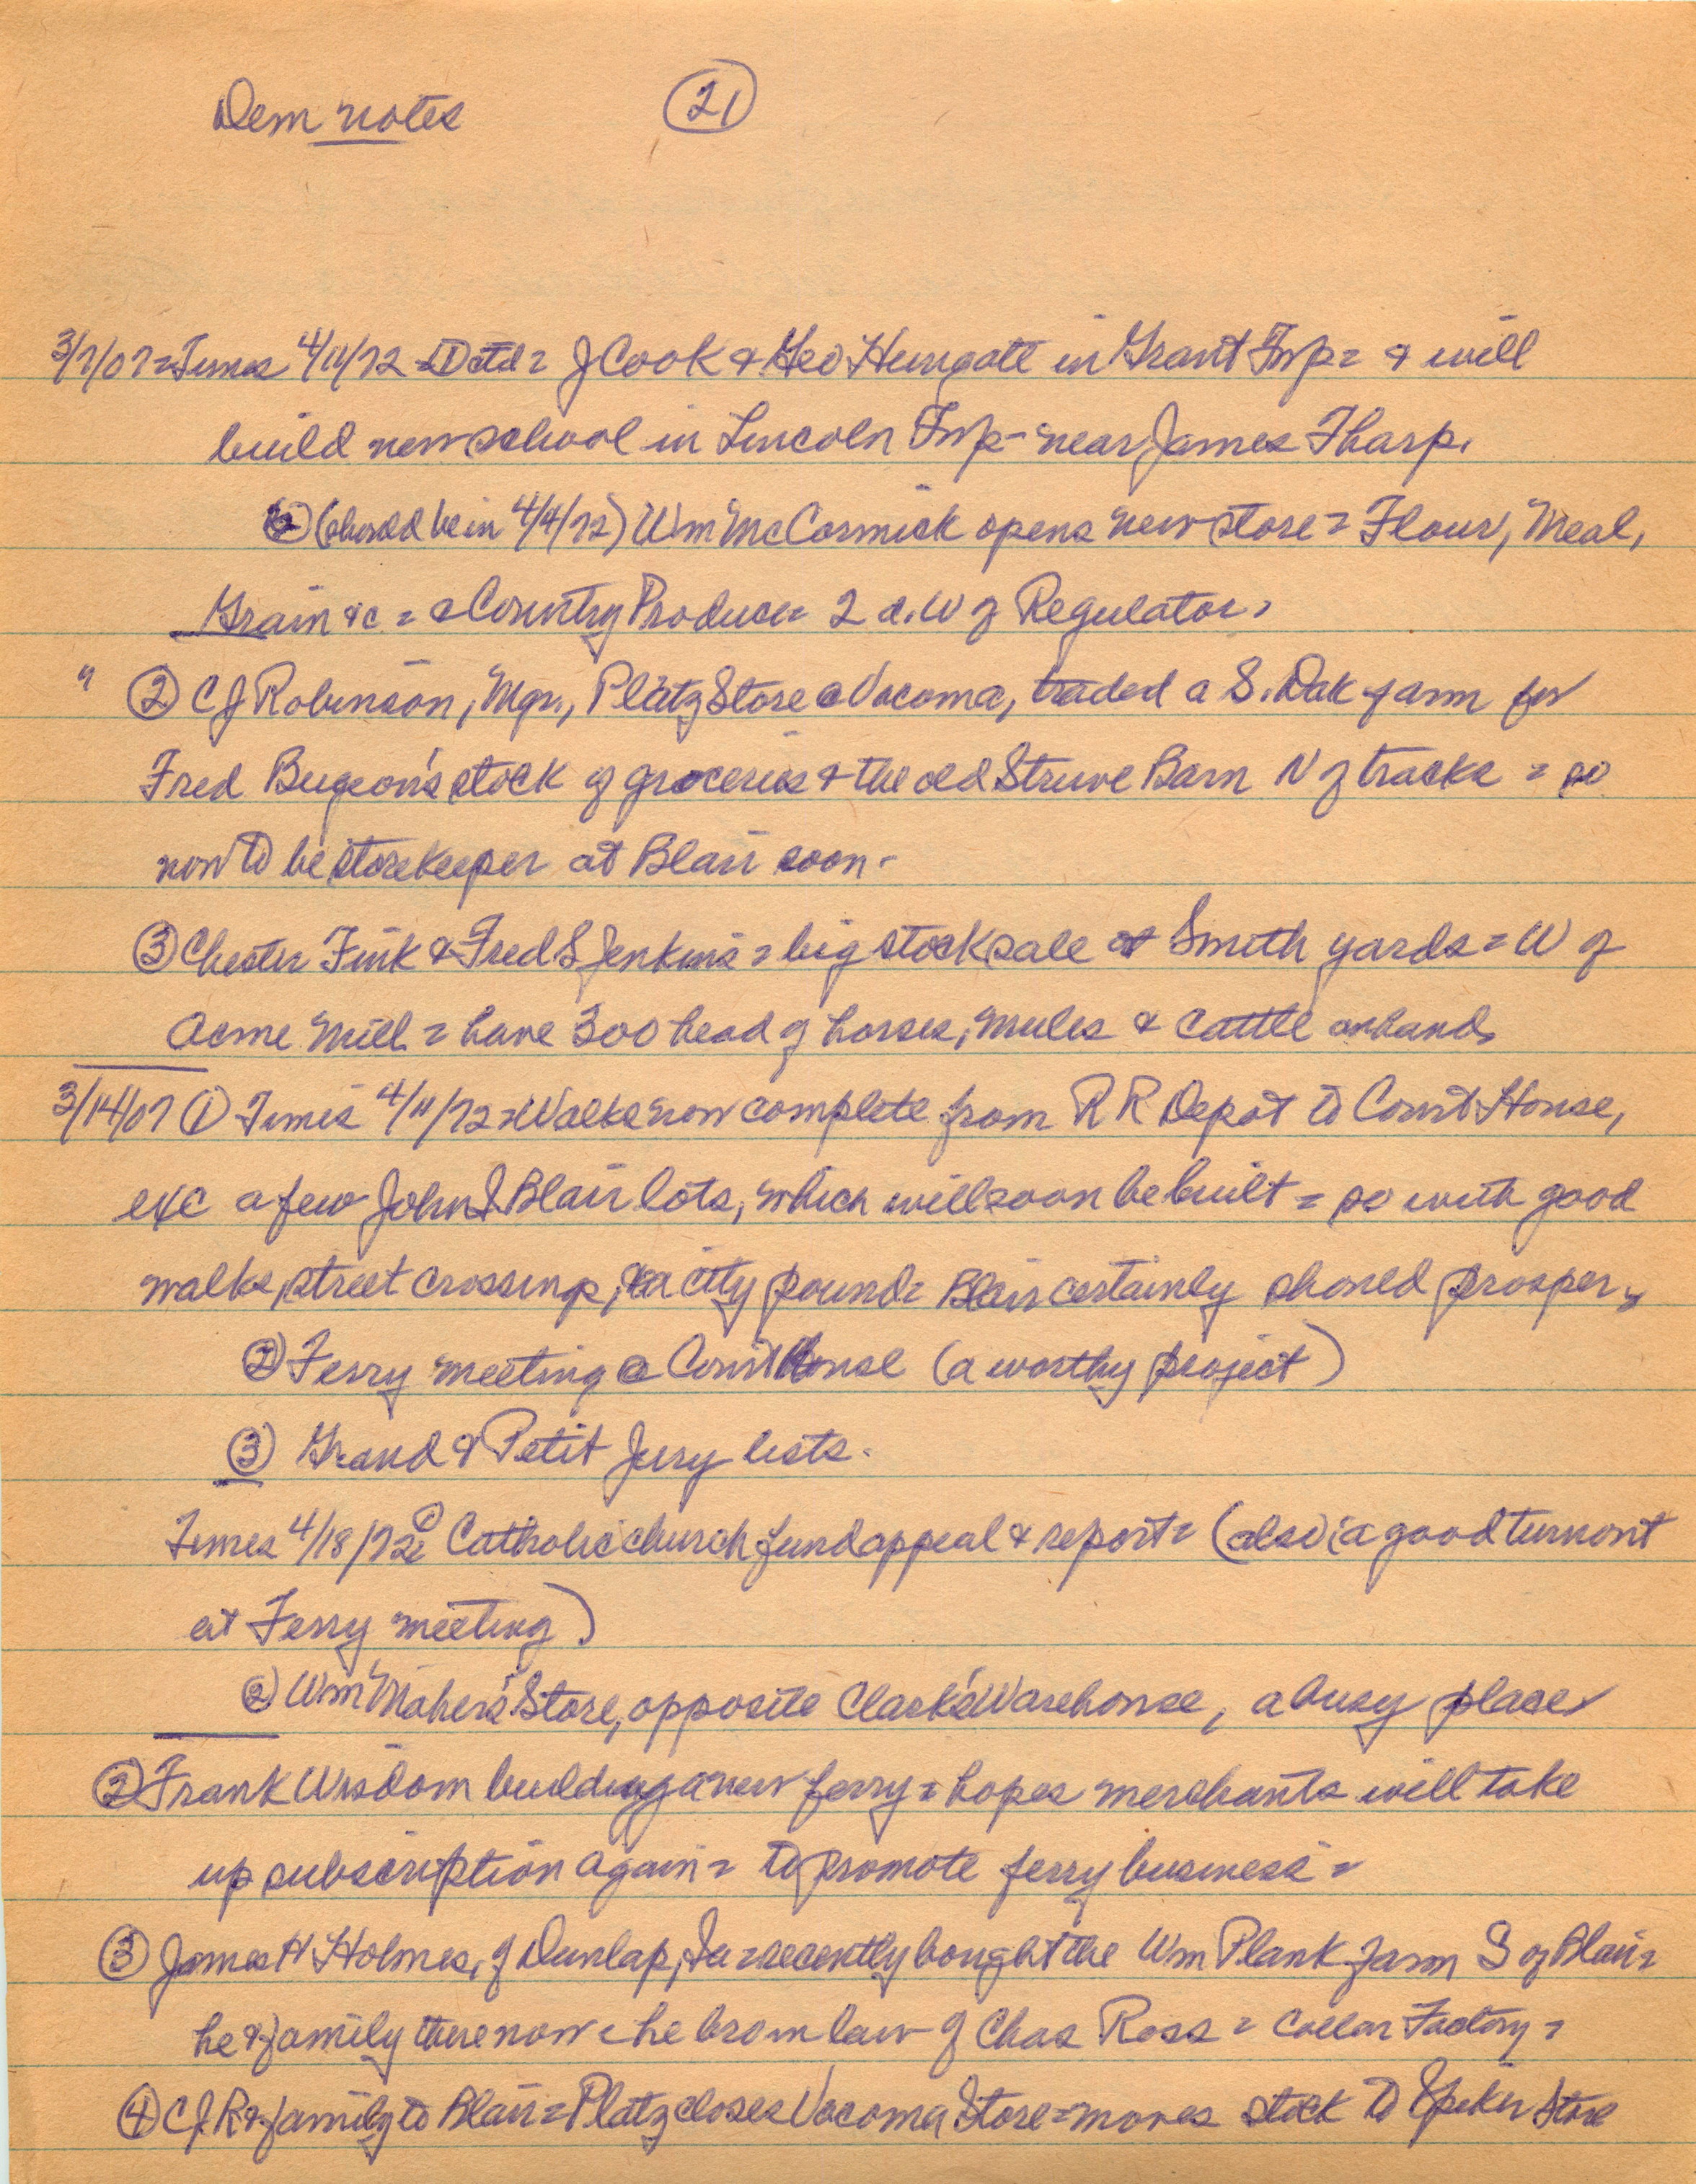 Dem notes (21)
3/7/07 = Times 4/11/72 = J Cook & Geo Hungate in Grant Twp = & will
build new school in Lincoln Twp - near James Tharp.
(should be in 4/4/72) Wm McCormick opens new store = Flour, Meal,
Grain &c = & Country Produce = 2 d. W of Regulator.
" (2) C J Robinson, Mgr., Platz Store @ Vacoma, traded a S. Dak farm for
Fred stock of groceries & the old Struve Barn N of tracks = so
now to be storekeeper at Blair soon -
(3) Chester Fink & Fred S Jenkins = big stock sale at Smith yards = W of
Acme Mill = have 300 head of horses, mules & cattle on hand.
3/14/07 (1) Times 4/11/72 = Walks now complete from R R Depot to Court House,
exc a few John I Blair lots, which will soon be built = so with good
walks, street crossings, & a city pound = Blair certainly should prosper.
(2) Ferry meeting @ Court House (a worthy project)
(3) Grand & Petit Jury lists.
Times 4/18/72 (1) Catholic church fund appeal & report = (also a good turnout
at Ferry meeting)
(2) Wm Maher's Store, opposite Clark's Warehouse, a busy place
(2) Frank Wisdom building a new ferry = hopes merchants will take
up subscription again = to promote ferry business =
(3) James H Holmes, of Dunlap, Ia = recently bought the Wm Plank farm S of Blair =
he & family there now = he bro in law of Chas Ross = Collar Factory =
(4) C J R & family to Blair = Platz closes Vacoma Store = moves stock to Spiker Store